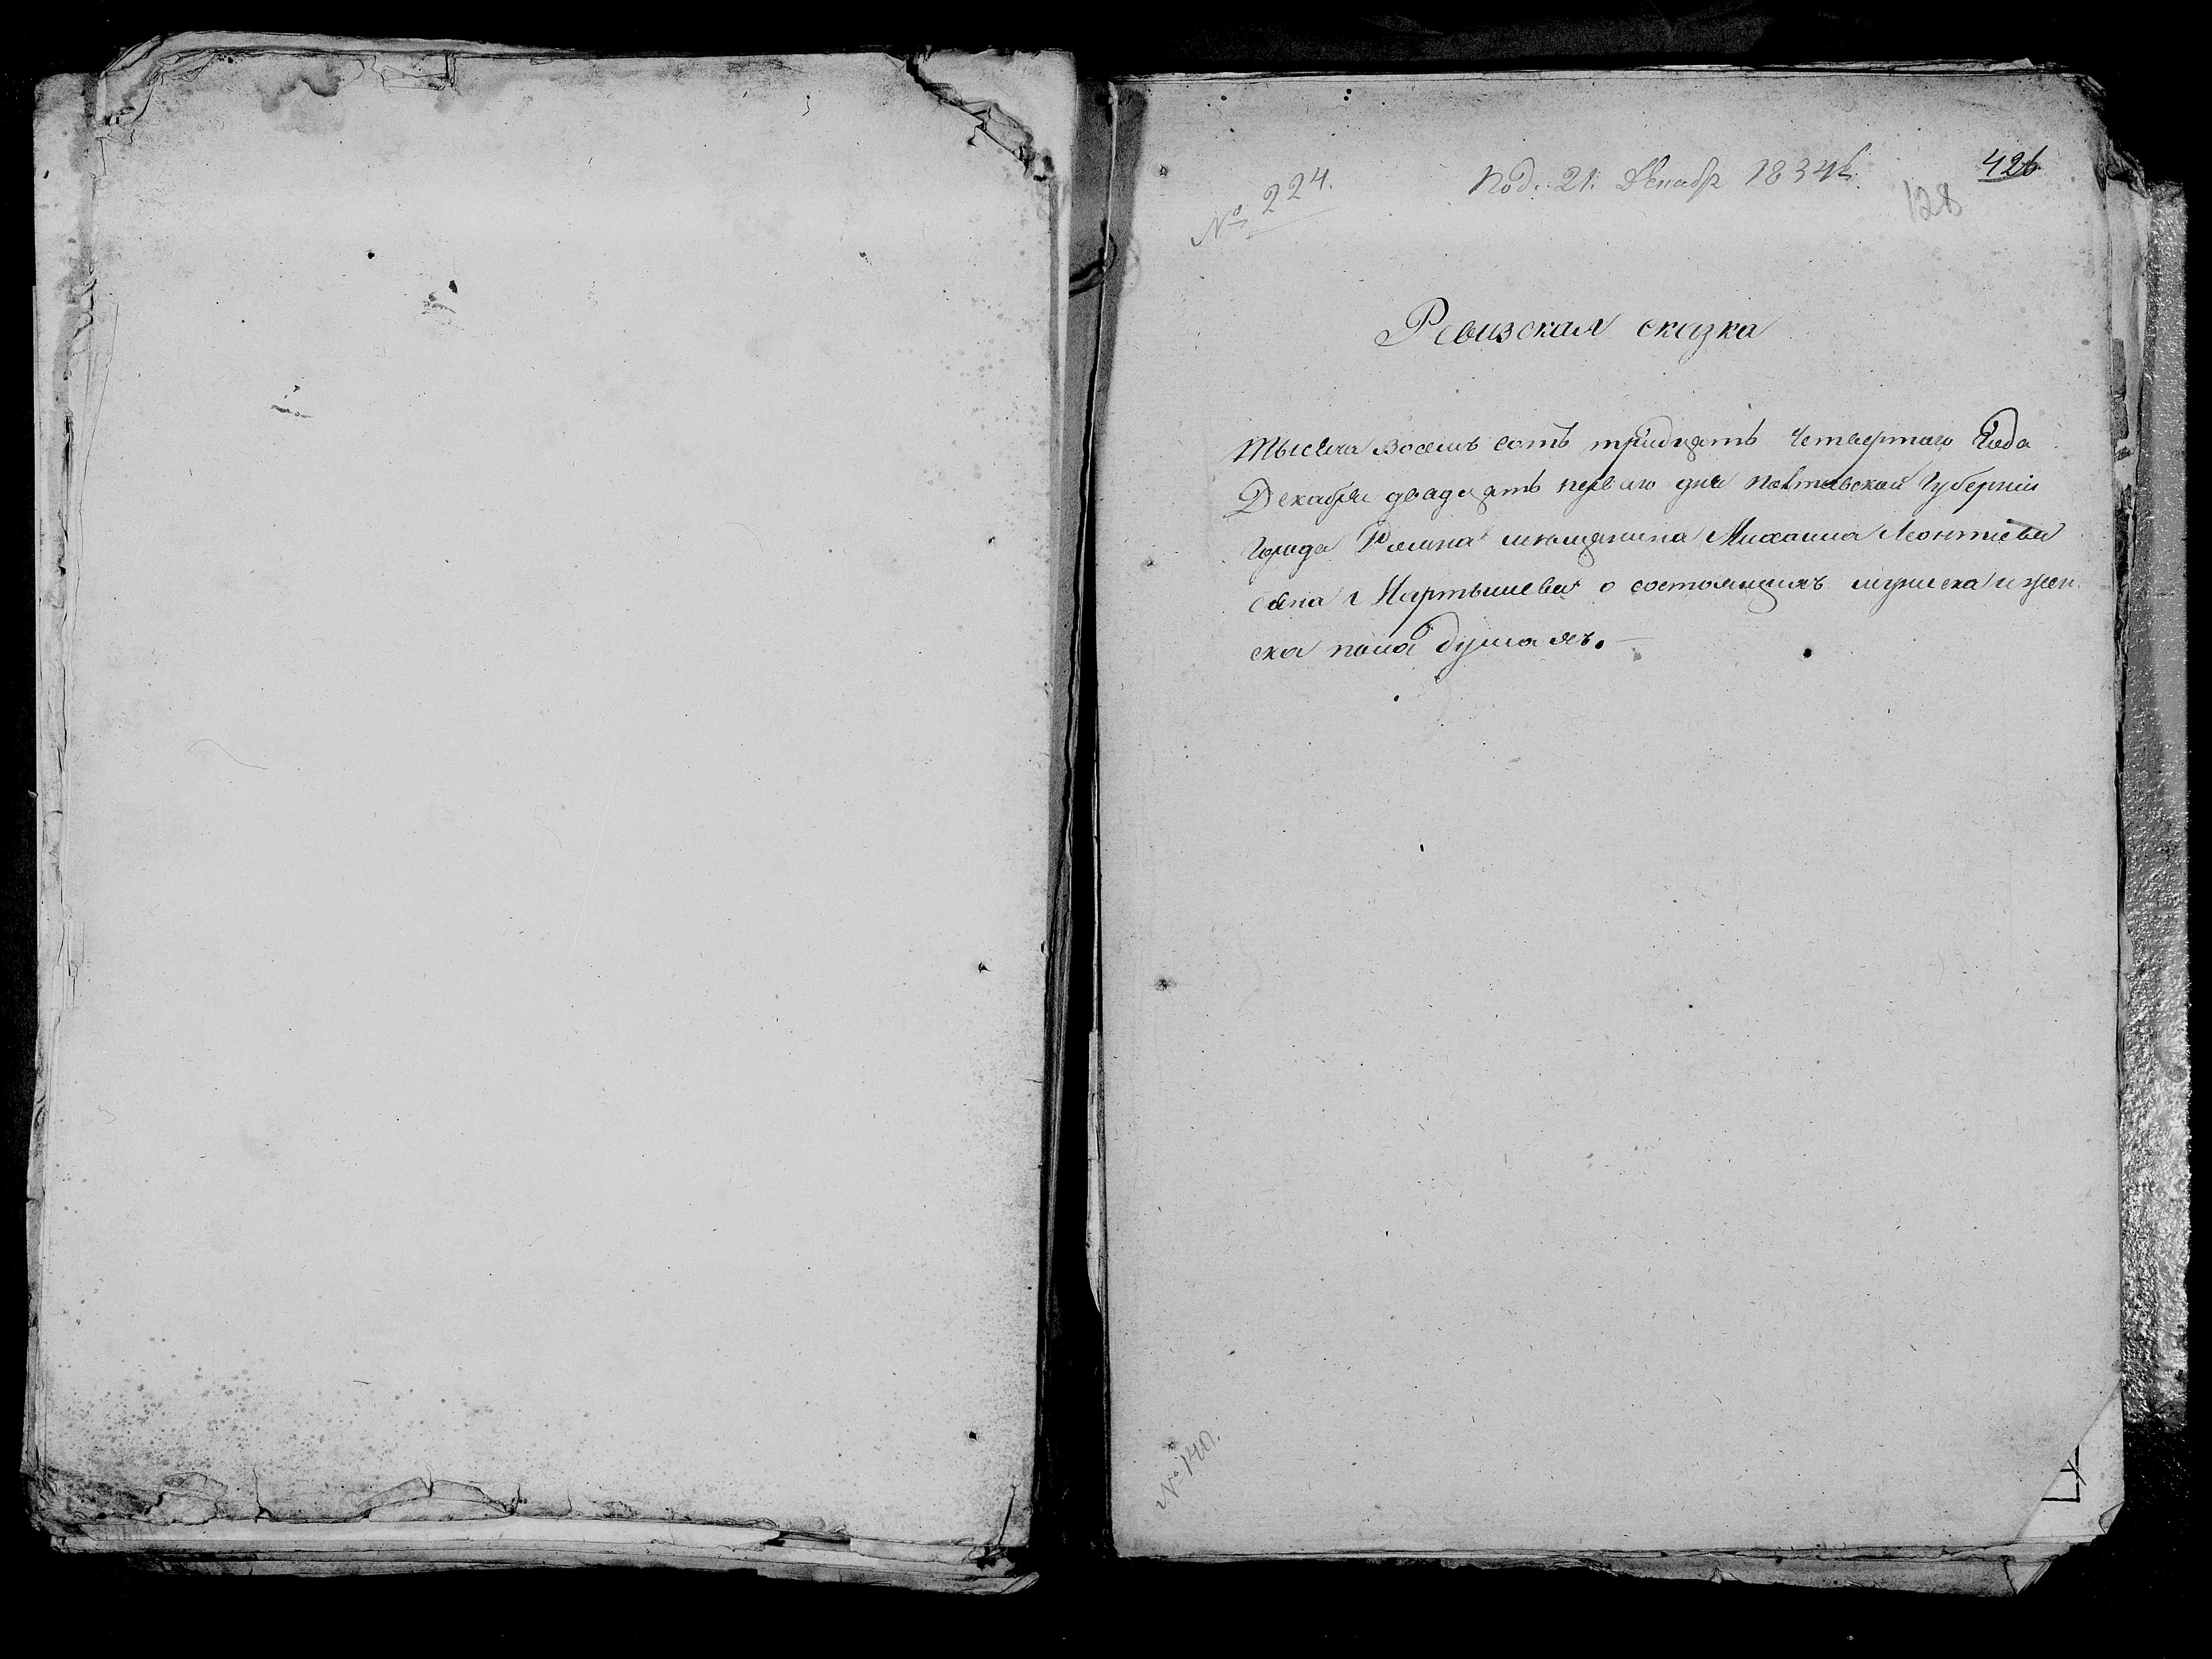 № 224.
Под. 21. Декабр 1834 г.
426
128
Ревизская сказка
Тысяча восемь сотъ тридцать четвертого Года
Декабря двадцять первого дня Полтавской Губернии
Города Ромна мещанина Михаила Леонтиева
сына Мартышева о состоящихъ мужеска и жен
ска пола душахъ.
№ 140.